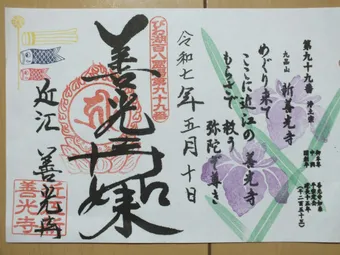 第九十九番 浄土宗
九品山 新善光寺
めぐり来て
ここに近江の善光寺
もらさで救う
弥陀ぞ尊き
令和七年五月十日
びわ湖百八霊場第九十九番
善光如来
近江 善光寺
近江
善光寺